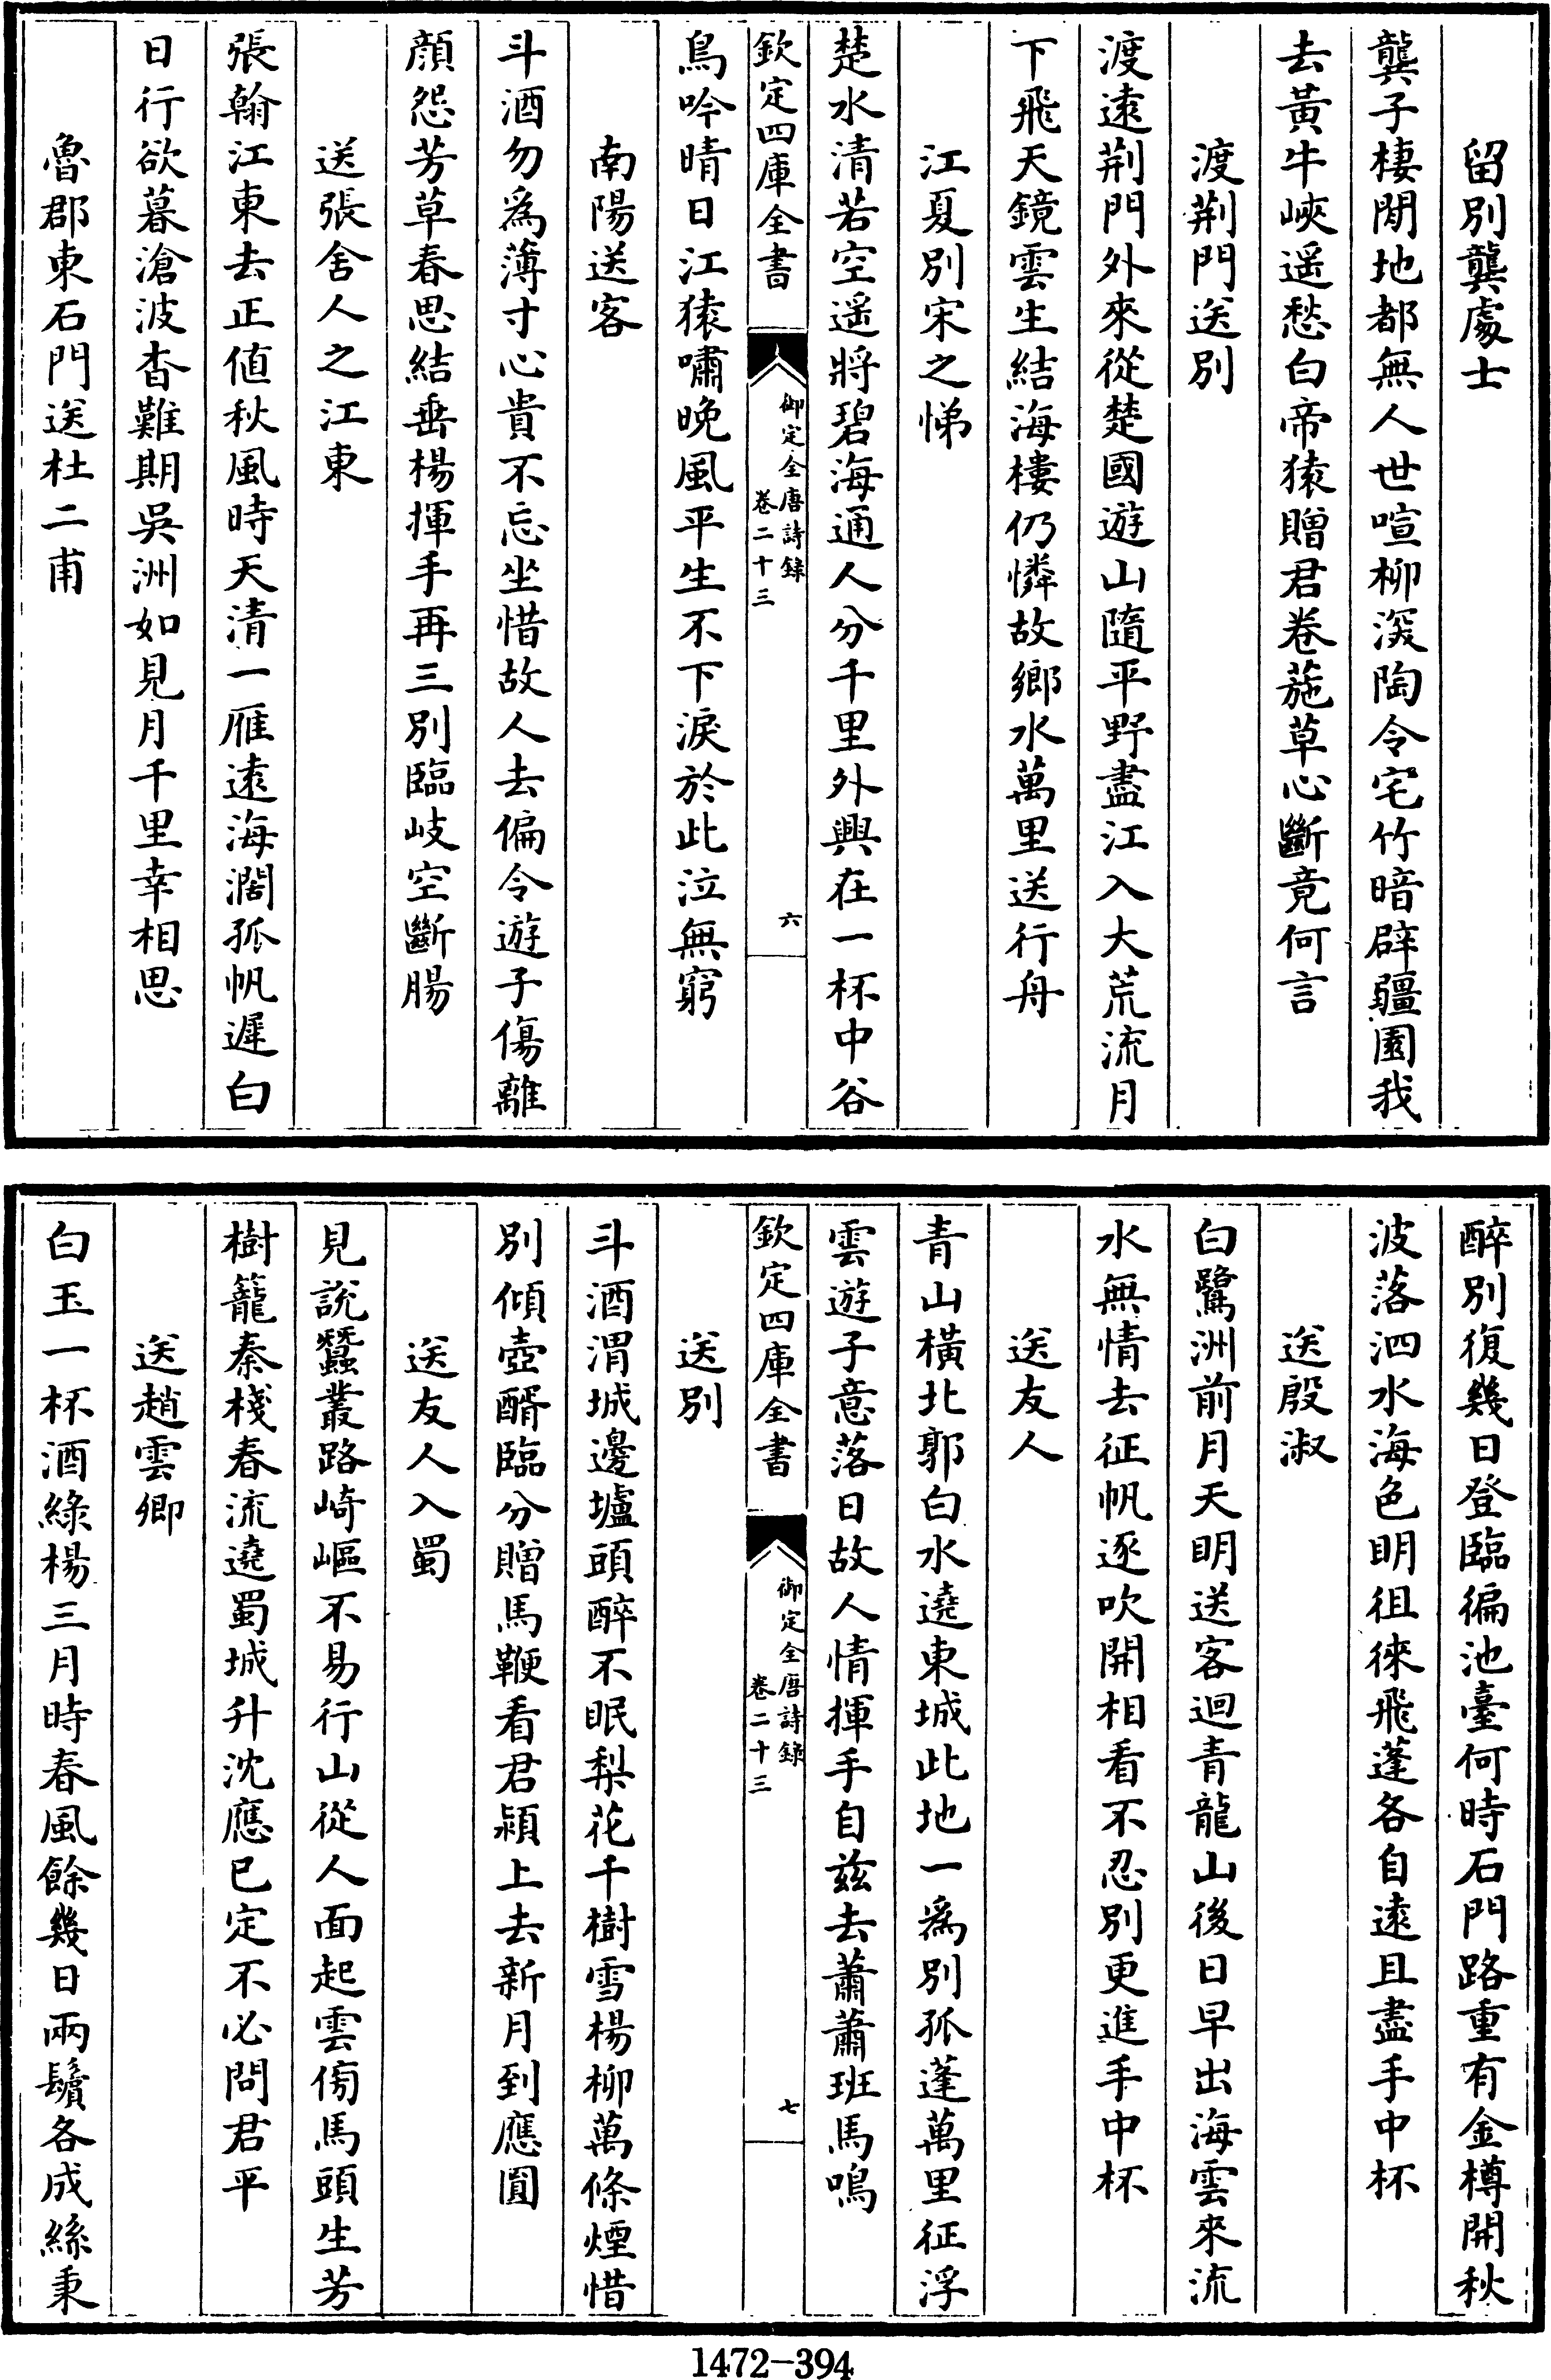 留別龔處士
龔子棲閒地都無人世喧柳深陶令宅竹暗辟疆園我
去黃牛峽遥愁白帝猿贈君卷葹草心斷竟何言
渡荆門送別
渡遠荆門外來從楚國遊山隨平野盡江入大荒流月
下飛天鏡雲生結海樓仍憐故鄉水萬里送行舟
江夏別宋之悌
楚水清若空遥將碧海通人分千里外興在一杯中谷
欽定四庫全書
御定全唐詩録
卷二十三
六
鳥吟晴日江猿嘯晚風平生不下淚於此泣無窮
南陽送客
斗酒勿爲薄寸心貴不忘坐惜故人去偏令遊子傷離
顔怨芳草春思結垂楊揮手再三別臨岐空斷腸
送張舍人之江東
張翰江東去正值秋風時天清一雁遠海濶孤帆遲白
日行欲暮滄波杳難期吳洲如見月千里幸相思
魯郡東石門送杜二甫
醉別復幾日登臨徧池臺何時石門路重有金樽開秋
波落泗水海色明徂徠飛蓬各自遠且盡手中杯
送殷淑
白鷺洲前月天明送客迴青龍山後日早出海雲來流
水無情去征帆逐吹開相看不忍別更進手中杯
送友人
青山橫北郭白水遶東城此地一爲別孤蓬萬里征浮
雲遊子意落日故人情揮手自兹去蕭蕭班馬鳴
欽定四庫全書
御定全唐詩録
卷二十三
七
送別
斗酒渭城邊壚頭醉不眠梨花千樹雪楊柳萬條煙惜
別傾壺醑臨分贈馬鞭看君潁上去新月到應圓
送友人入蜀
見說蠶叢路崎嶇不易行山從人面起雲傍馬頭生芳
樹籠秦棧春流遶蜀城升沈應已定不必問君平
送趙雲卿
白玉一杯酒綠楊三月時春風餘幾日兩鬢各成絲秉
1472-394